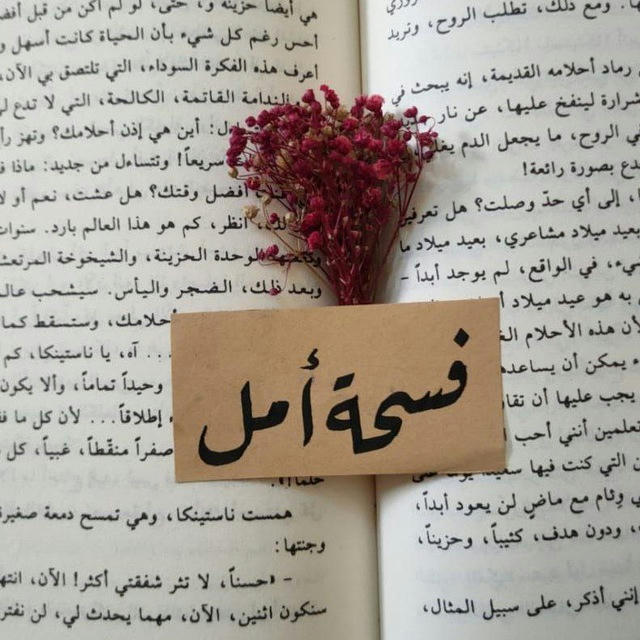 ومع ذلك، تطلب الروح، وتريد
رماد أحلامه القديمة، إنه يبحث في
شرارة لينفخ عليها، عن نار
الروح، ما يجعل الدم
بصورة رائعة!
إلى أي حدّ وصلت؟ هل
بعيد ميلاد مشاعري، بعيد ميلاد ما
في الواقع، لم يوجد أبداً -
به هو عيد ميلاد
لأن هذه الأحلام
يمكن أن
يجب عليها أن
تعلمين أنني أحب
التي كنت فيها
وئام مع ماضٍ لن يعود أبداً،
ودون هدف، كئيباً، وحزيناً،
إنني أذكر، على سبيل المثال،
فسحة أمل
هي أيضاً حزينة و، حتى، لو لم أكن من قبل
أحس رغم كل شيء بأن الحياة كانت أسهل
أعرف هذه الفكرة السوداء، التي تلتصق بي الآن،
الندامة القاتمة، الكالحة، التي لا تدع
أين هي إذن أحلامك؟ وتهز
سريعاً! وتتساءل من جديد: ماذا
أفضل وقتك؟ هل عشت، نعم أو
انظر، كم هو هذا العالم بارد. سنوات
الوحدة الحزينة، والشيخوخة
وبعد ذلك، الضجر واليأس. سيشحب
أحلامك، وستسقط كما
... آه، يا ناستينكا، كم
وحيداً تماماً، وألا يكون
إطلاقاً... لأن كل ما
صفراً منقّطاً، غبياً، كل
حلماً!.
همست ناستينكا، وهي تمسح دمعة
وجنتها:
- «حسناً، لا تثر شفقتي أكثر! الآن،
سنكون اثنين، الآن، مهما يحدث لي، لن